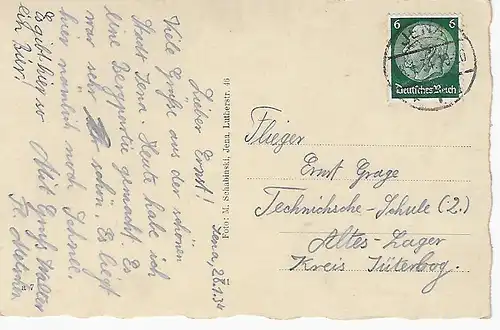 Jena, 28.1.34
Lieber Ernst!
Viele Grüße aus der schönen
Stadt Jena. Heute habe ich
eine Bergpartie gemacht. Es
war sehr schön. Es liegt
hier nämlich noch Schnee.
Mit Gruß Walter
Es gibt hier so
ein Bier!
Foto: M. Schabinski, Jena, Lutherstr. 46
6 6
Deutsches Reich
JENA
Flieger
Ernst Grage
Technische-Schule (2.)
Altes-Lager
Kreis Jüterbog.